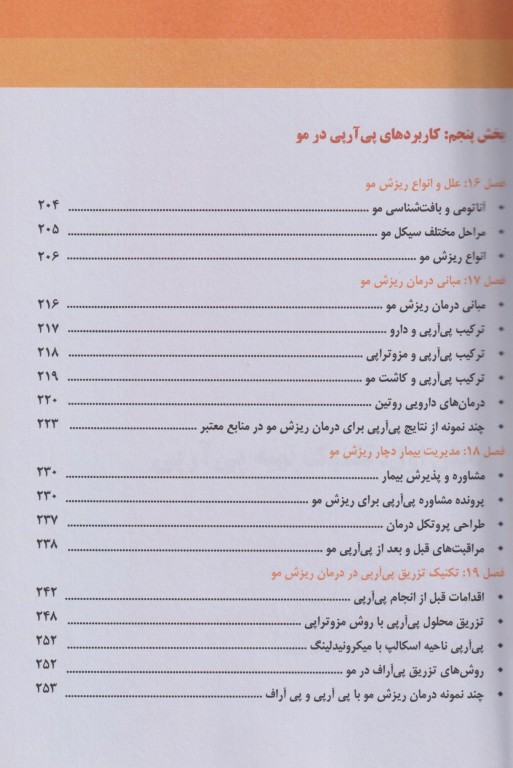 بخش پنجم: کاربردهای پی‌آرپی در مو
فصل ۱۶: علل و انواع ریزش مو
• آناتومی و بافت‌شناسی مو ........ ۲۰۴
• مراحل مختلف سیکل مو ........ ۲۰۵
• انواع ریزش مو ........ ۲۰۶
فصل ۱۷: مبانی درمان ریزش مو
• مبانی درمان ریزش مو ........ ۲۱۶
• ترکیب پی‌آرپی و دارو ........ ۲۱۷
• ترکیب پی‌آرپی و مزوتراپی ........ ۲۱۸
• ترکیب پی‌آرپی و کاشت مو ........ ۲۱۹
• درمان‌های دارویی روتین ........ ۲۲۰
• چند نمونه از نتایج پی‌آرپی برای درمان ریزش مو در منابع معتبر ........ ۲۲۳
فصل ۱۸: مدیریت بیمار دچار ریزش مو
• مشاوره و پذیرش بیمار ........ ۲۳۰
• پرونده مشاوره پی‌آرپی برای ریزش مو ........ ۲۳۰
• طراحی پروتکل درمان ........ ۲۳۷
• مراقبت‌های قبل و بعد از پی‌آرپی مو ........ ۲۳۸
فصل ۱۹: تکنیک تزریق پی‌آرپی در درمان ریزش مو
• اقدامات قبل از انجام پی‌آرپی ........ ۲۴۲
• تزریق محلول پی‌آرپی با روش مزوتراپی ........ ۲۴۸
• پی‌آرپی ناحیه اسکالپ با میکرونیدلینگ ........ ۲۵۲
• روش‌های تزریق پی‌آراف در مو ........ ۲۵۲
• چند نمونه درمان ریزش مو با پی آرپی و پی آراف ........ ۲۵۳